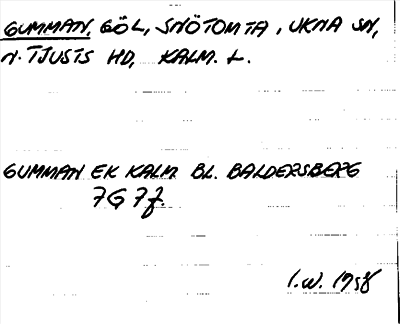 GUMMAN, GÖL, SNÖTOMTA, UKNA SN,
N. TJUSTS HD, KALM. L.
GUMMAN EK KALM BL. BALDERSBERG
7G 7f.
I.W. 1958